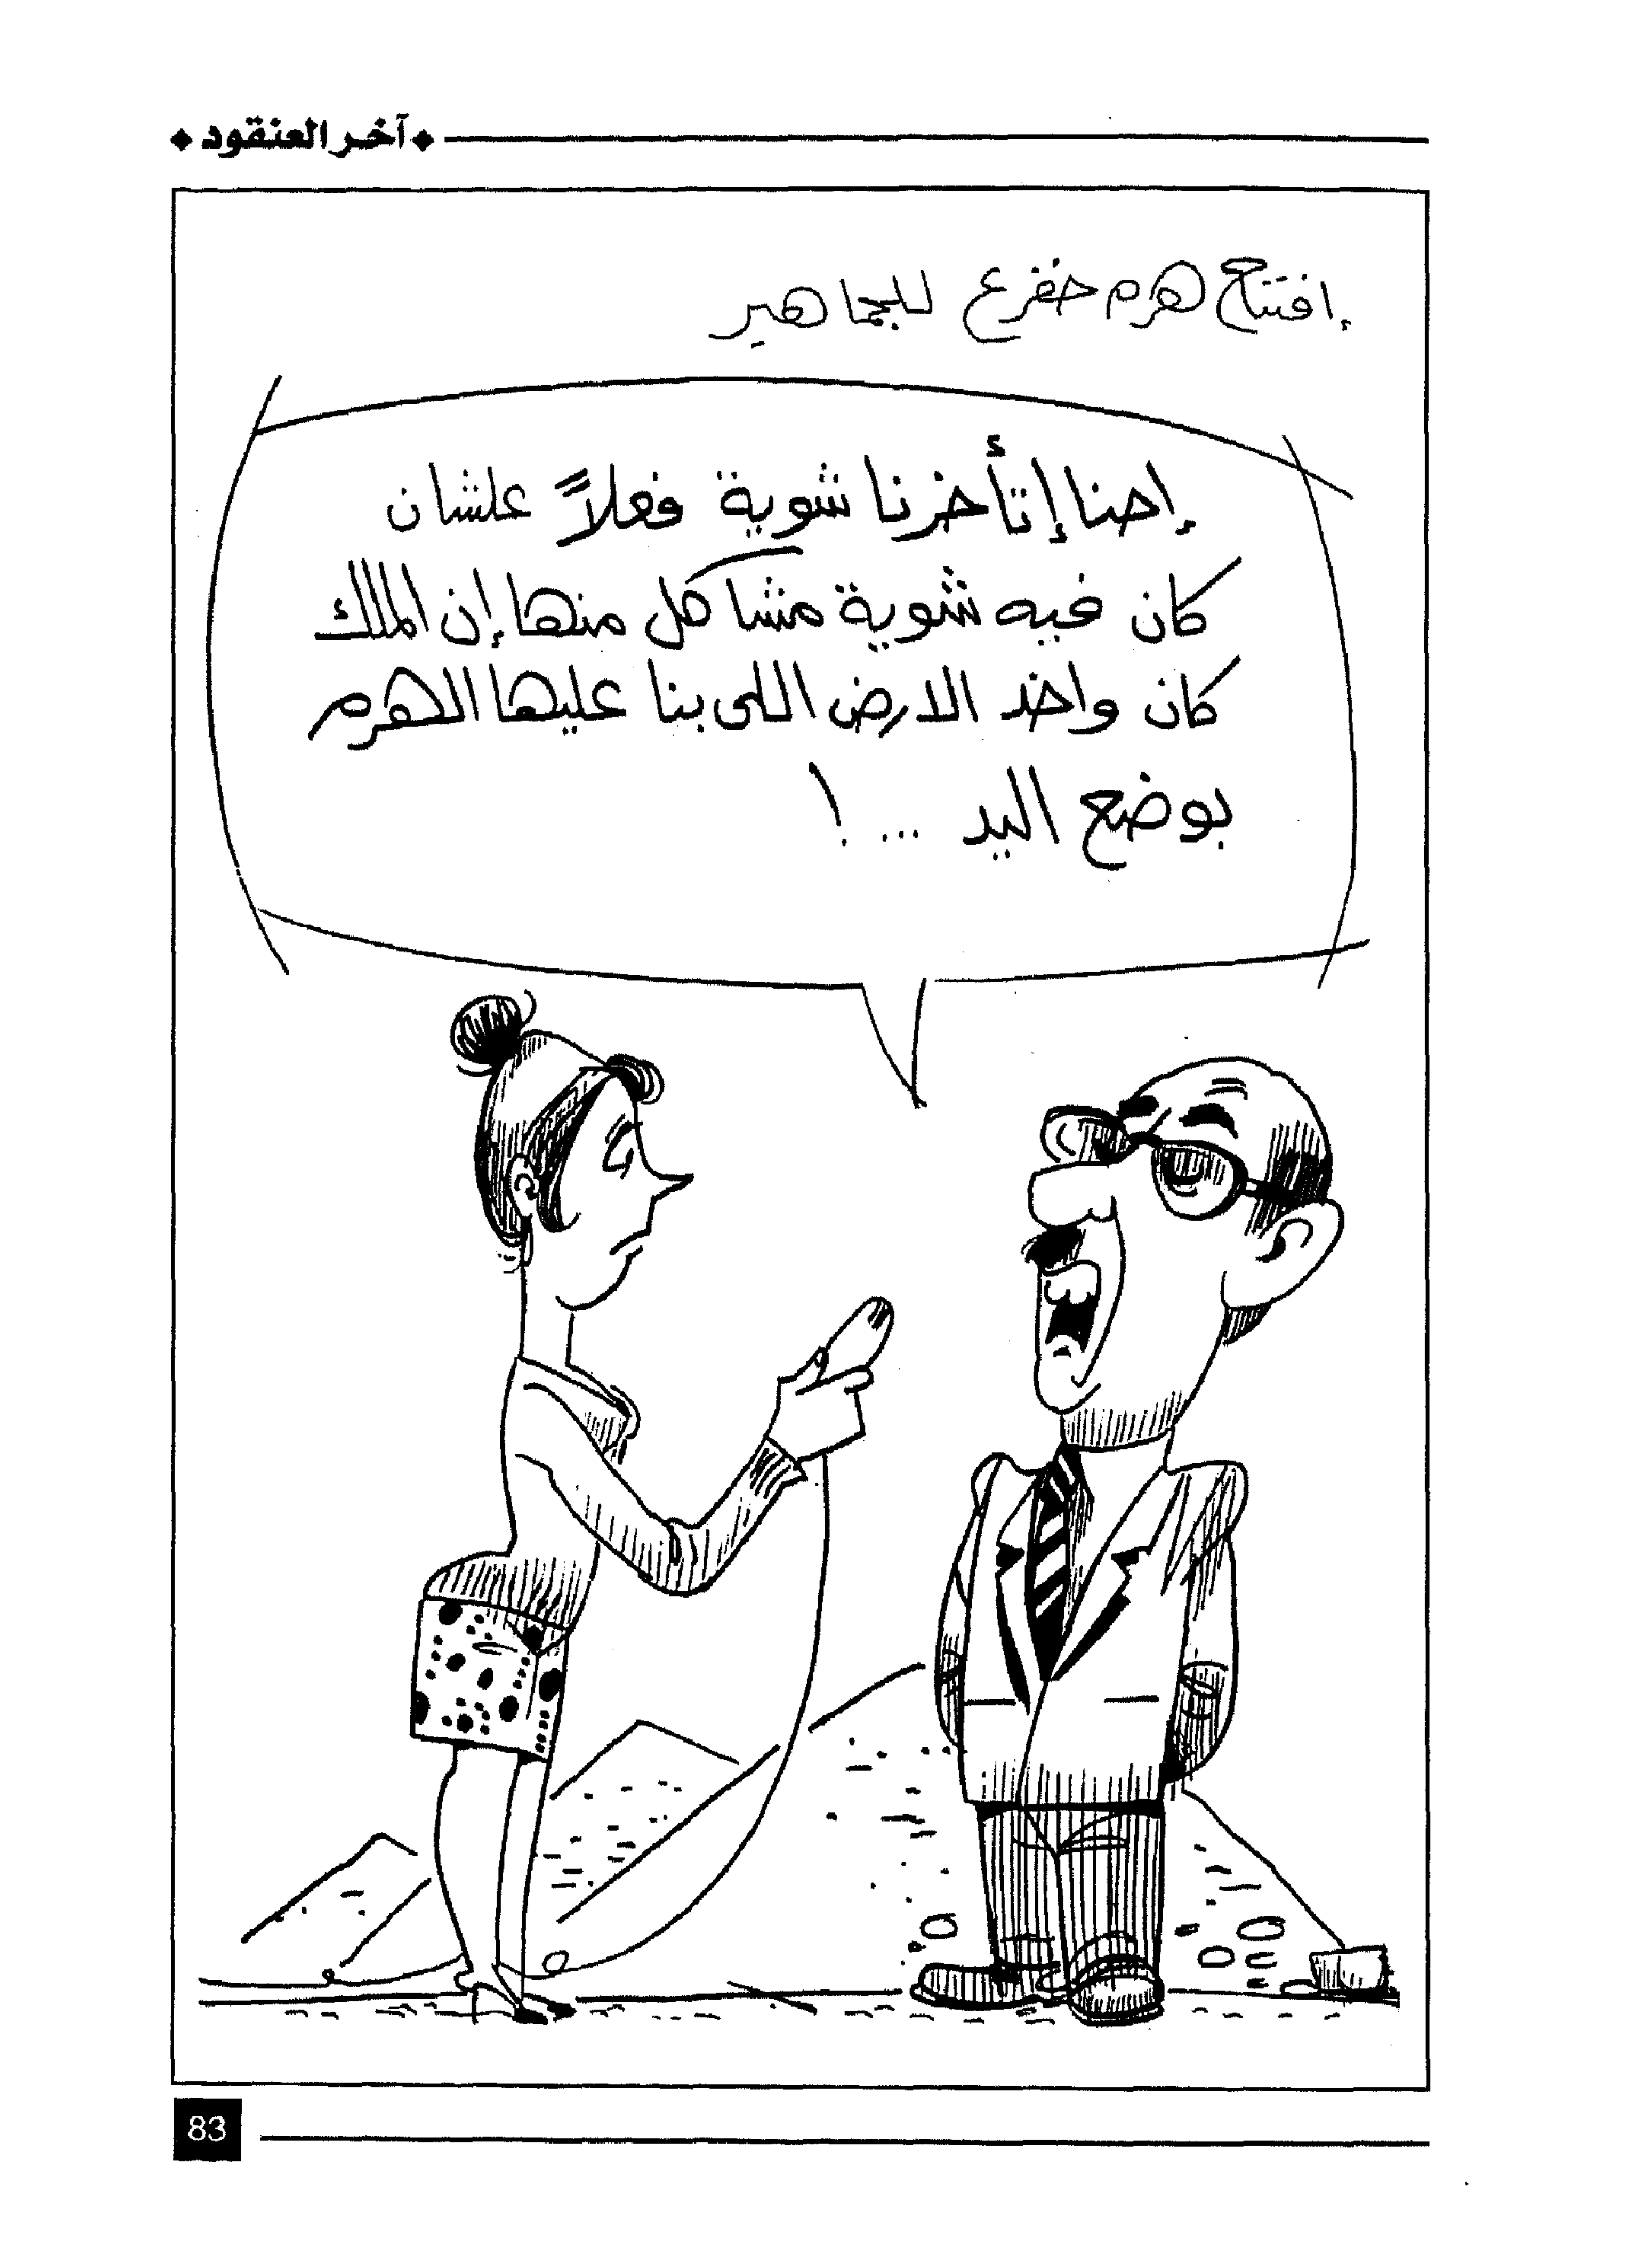 ◆ آخر العنقود ◆
إفتتح هرم خفرع للجماهير
إحنا إتأخرنا شوية فعلاً علشان
كان فيه شوية مشاكل منها إن الملك
كان واخد الارض اللى بنا عليها الهرم
بوضع اليد ... !
83